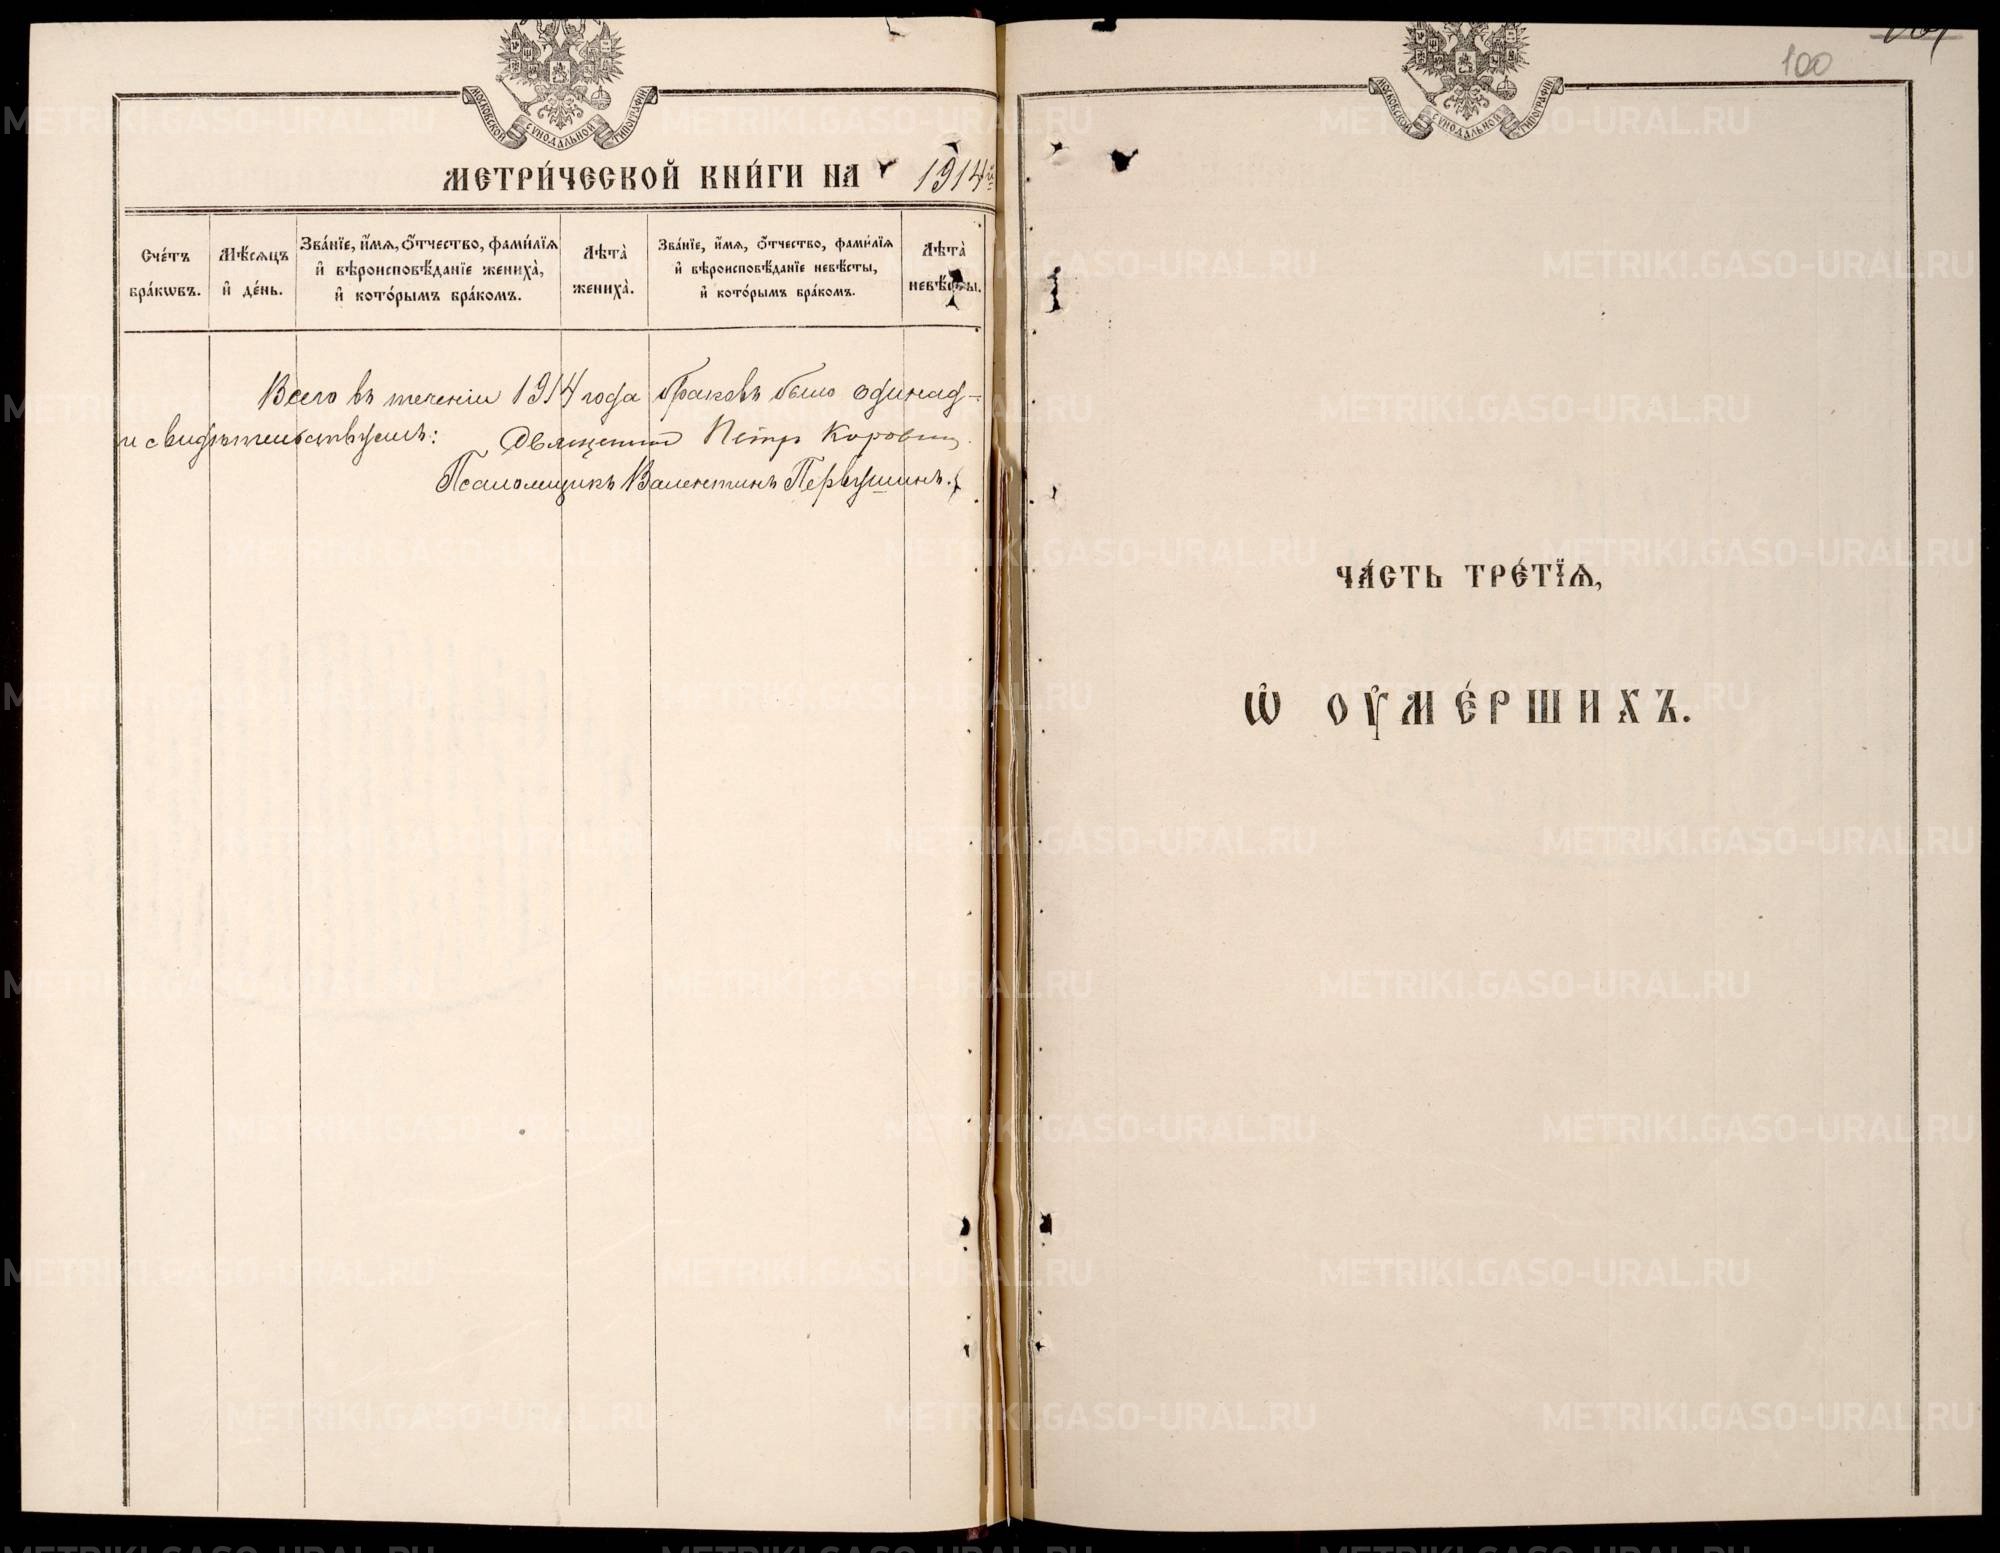 МОСКОВСКОЙ СѴНОДАЛЬНОЙ ТИПОГРАФІИ
МЕТРИ́ЧЕСКОЙ КНИ́ГИ НА 1914й
Сче́тъ бра́кѡвъ.
Мѣ́сяцъ и҆ де́нь.
Зва́нїе, и҆́мѧ, ѻ҆́тчество, фами́лїѧ и҆ вѣроисповѣ́данїе жениха̀, и҆ кото́рымъ бра́комъ.
Лѣ́та̀ жениха̀.
Зва́нїе, и҆́мѧ, ѻ҆́тчество, фами́лїѧ и҆ вѣроисповѣ́данїе невѣ́сты, и҆ кото́рымъ бра́комъ.
Лѣ́та̀ невѣ́сты.
Всего въ теченіи 1914 года браковъ было одинад-
и свидѣтельствуемъ: Священник Петръ Коровин
Псаломщикъ Валентинъ Первушинъ.
МОСКОВСКОЙ СѴНОДАЛЬНОЙ ТИПОГРАФІИ
100
ЧА́СТЬ ТРЕ́ТЇѦ,
Ѡ҆ ОУ҆МЕ́РШИХЪ.
METRIKI.GASO-URAL.RU